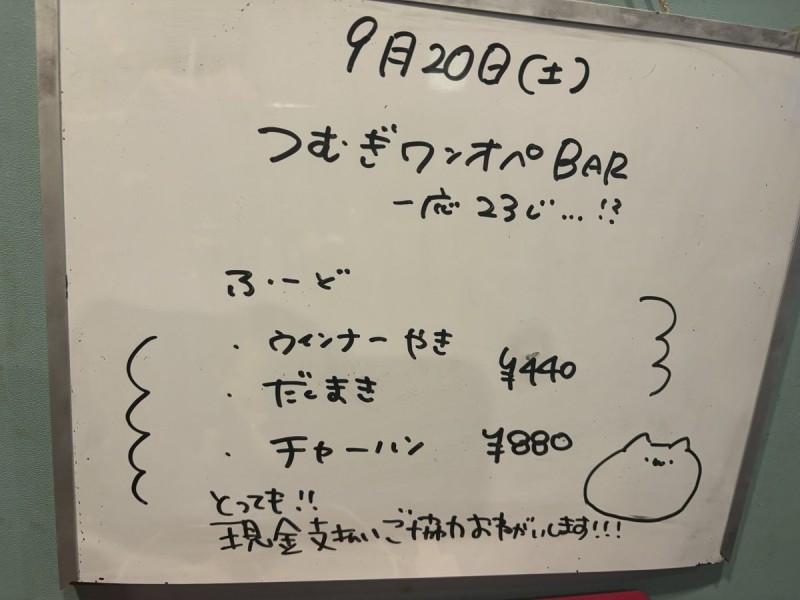 9月20日(土)
つむぎワンオペBAR
一応23じ...!?
ふーど
・ウィンナーやき
¥440
・だしまき
・チャーハン ¥880
とっても!!
現金支払いご協力おねがいします!!!